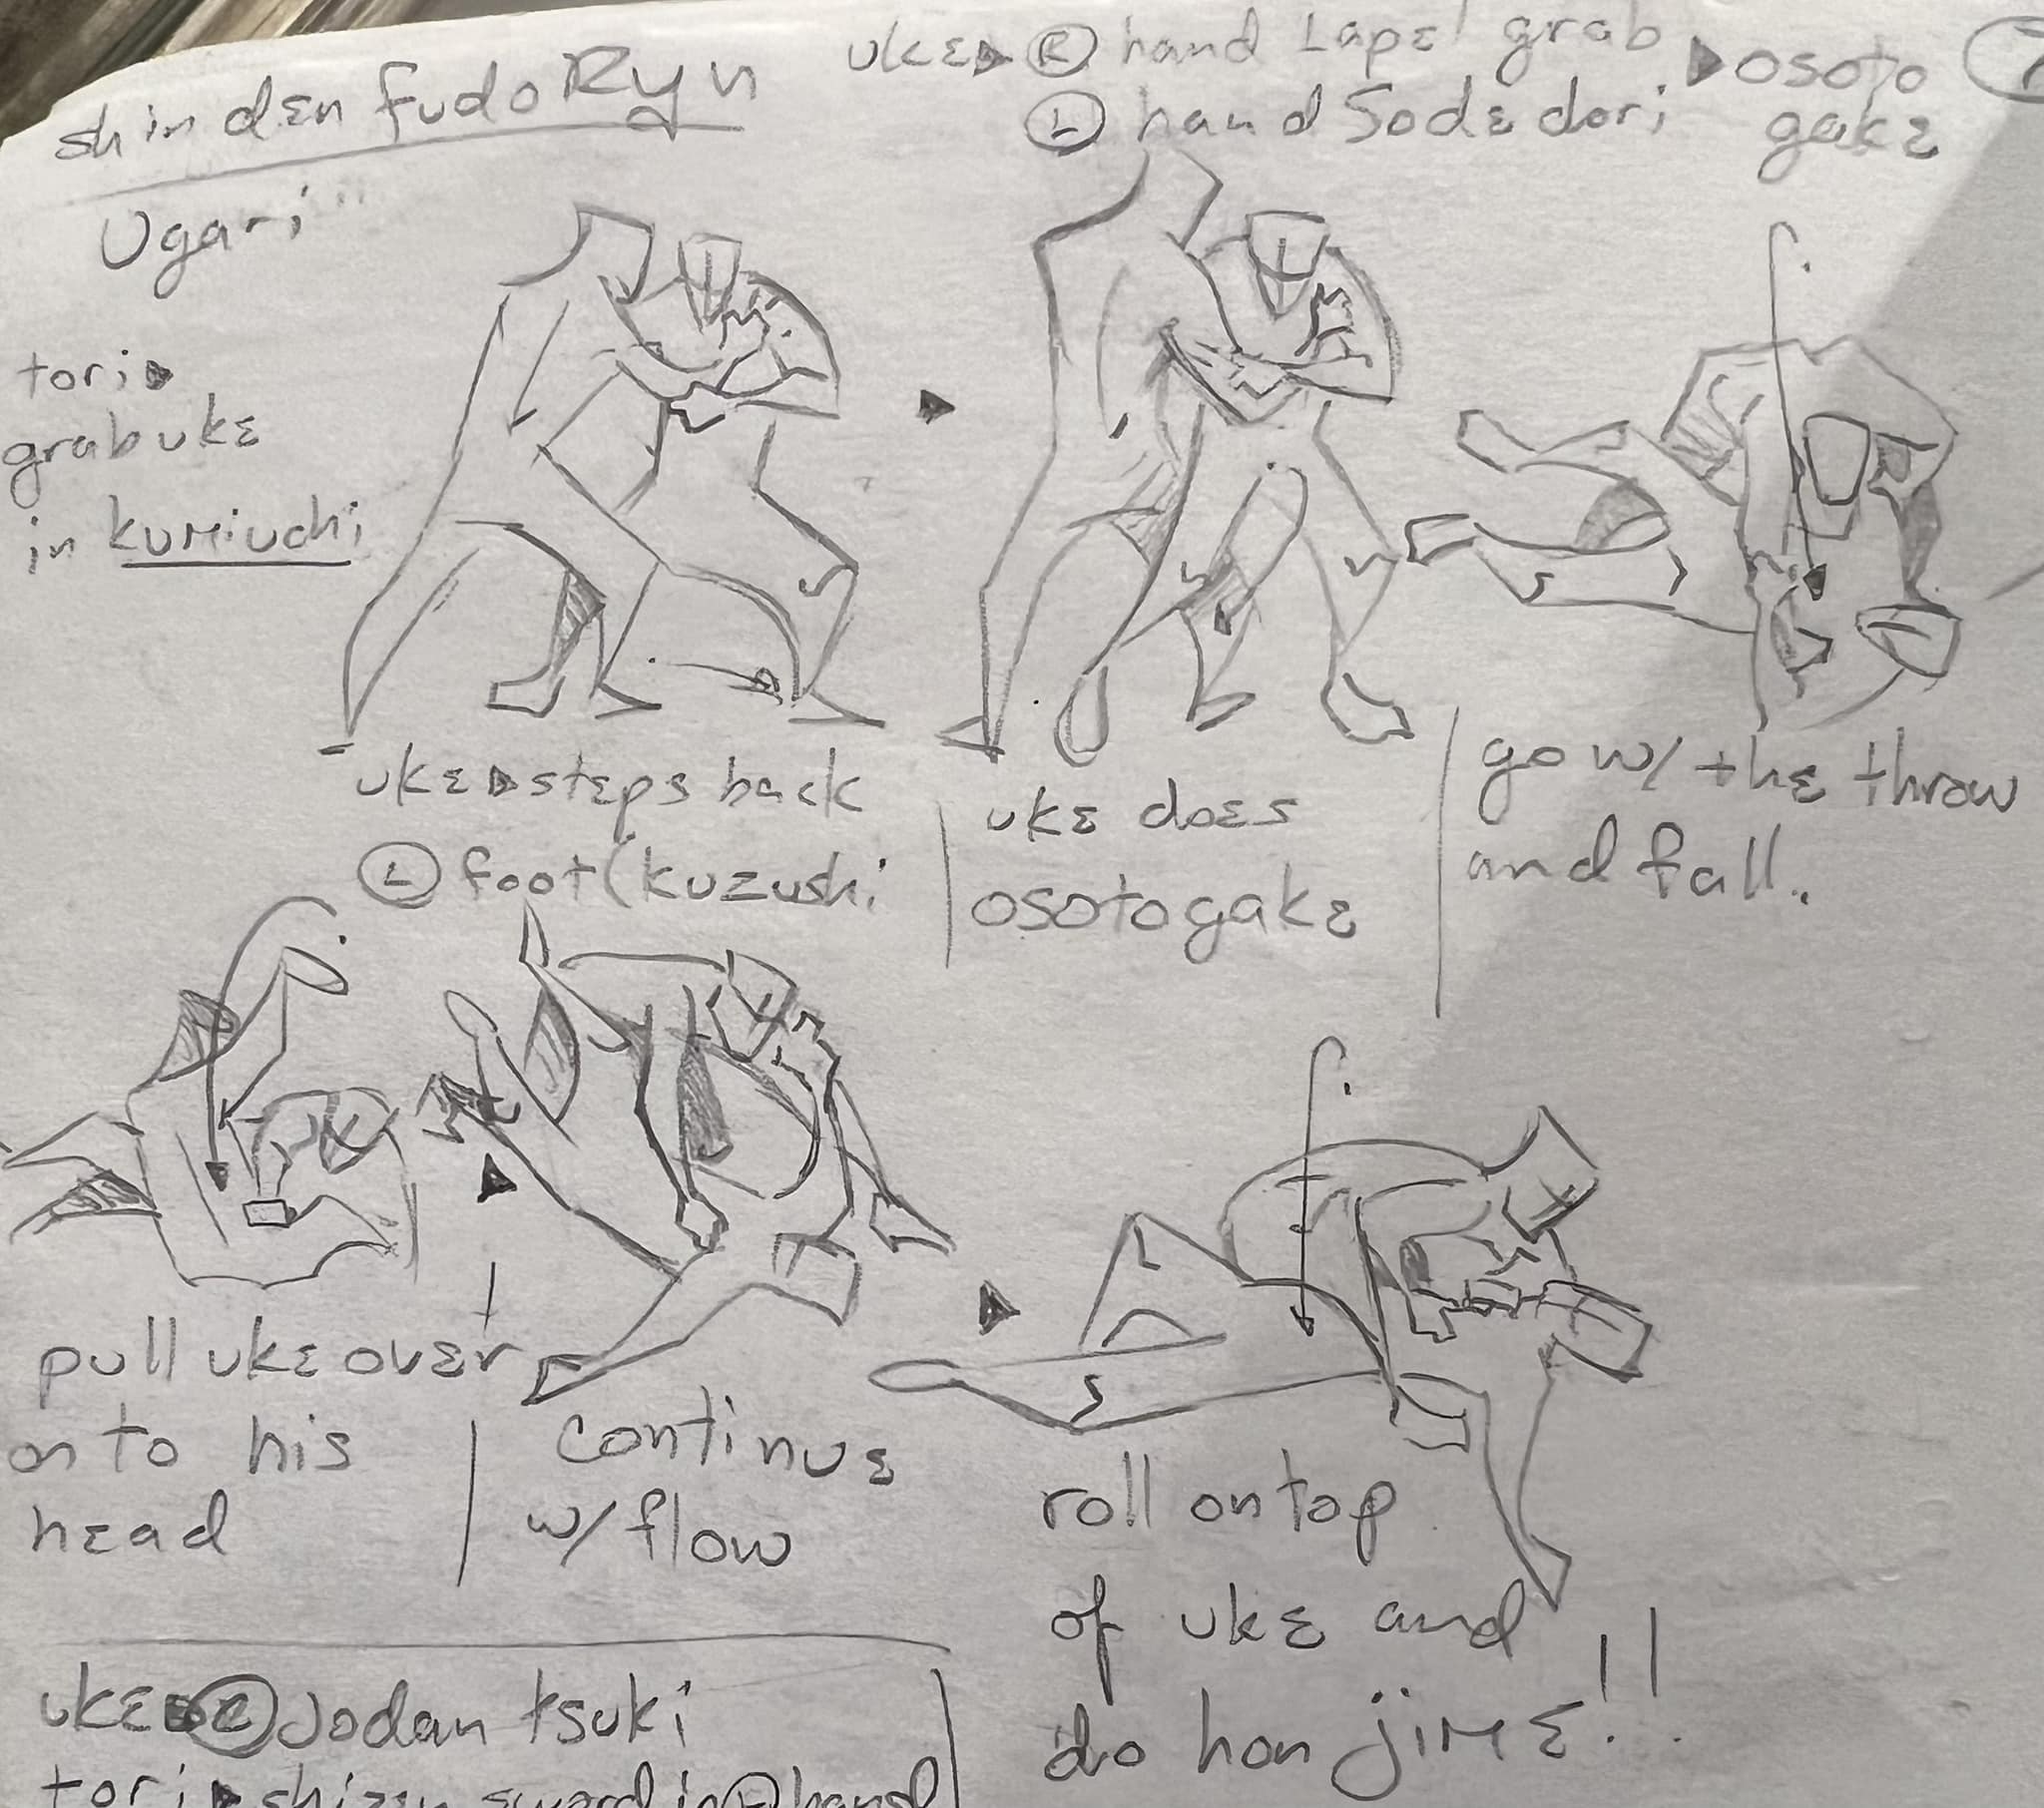 shinden fudo Ryu
uke▶ Ⓡ hand Lapel grab ▶ osoto
Ⓛ hand Sode dori gake
Ugari
tori▶
grab uke
in kumiuchi
uke▶steps back
Ⓛ foot (kuzushi
uke does
osotogake
go w/ the throw
and fall..
pull uke over
on to his
head
continue
w/ flow
roll on top
of uke and
do hon jime!!
uke▶ Jodan tsuki
tori▶ shizen sword in hand